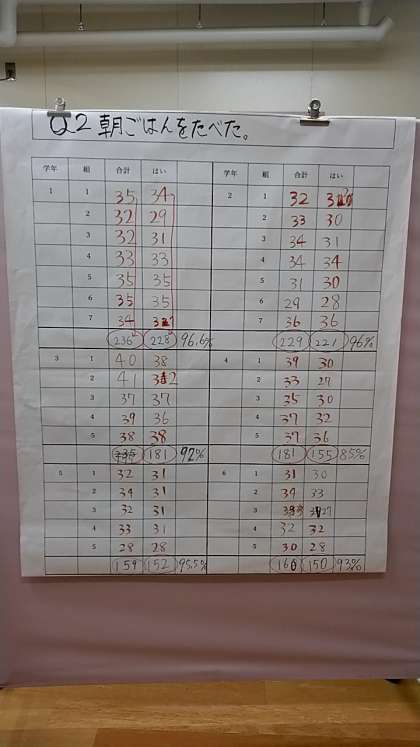 Q2 朝ごはんをたべた。
学年 組 合計 はい 学年 組 合計 はい
1 1 35 34 2 1 32
2 32 29 2 33 30
3 32 31 3 34 31
4 33 33 4 34 34
5 35 35 5 31 30
6 35 35 6 29 28
7 34 7 36 36
236 228 96.6% 229 221 96%
3 1 40 38 4 1 39 30
2 41 2 33 27
3 37 37 3 35 30
4 39 36 4 37 32
5 38 38 5 37 36
181 92% 181 155 85%
5 1 32 31 6 1 31 30
2 34 31 2 34 33
3 32 31 3
4 33 31 4 32 32
5 28 28 5 30 28
159 152 95.5% 160 150 93%